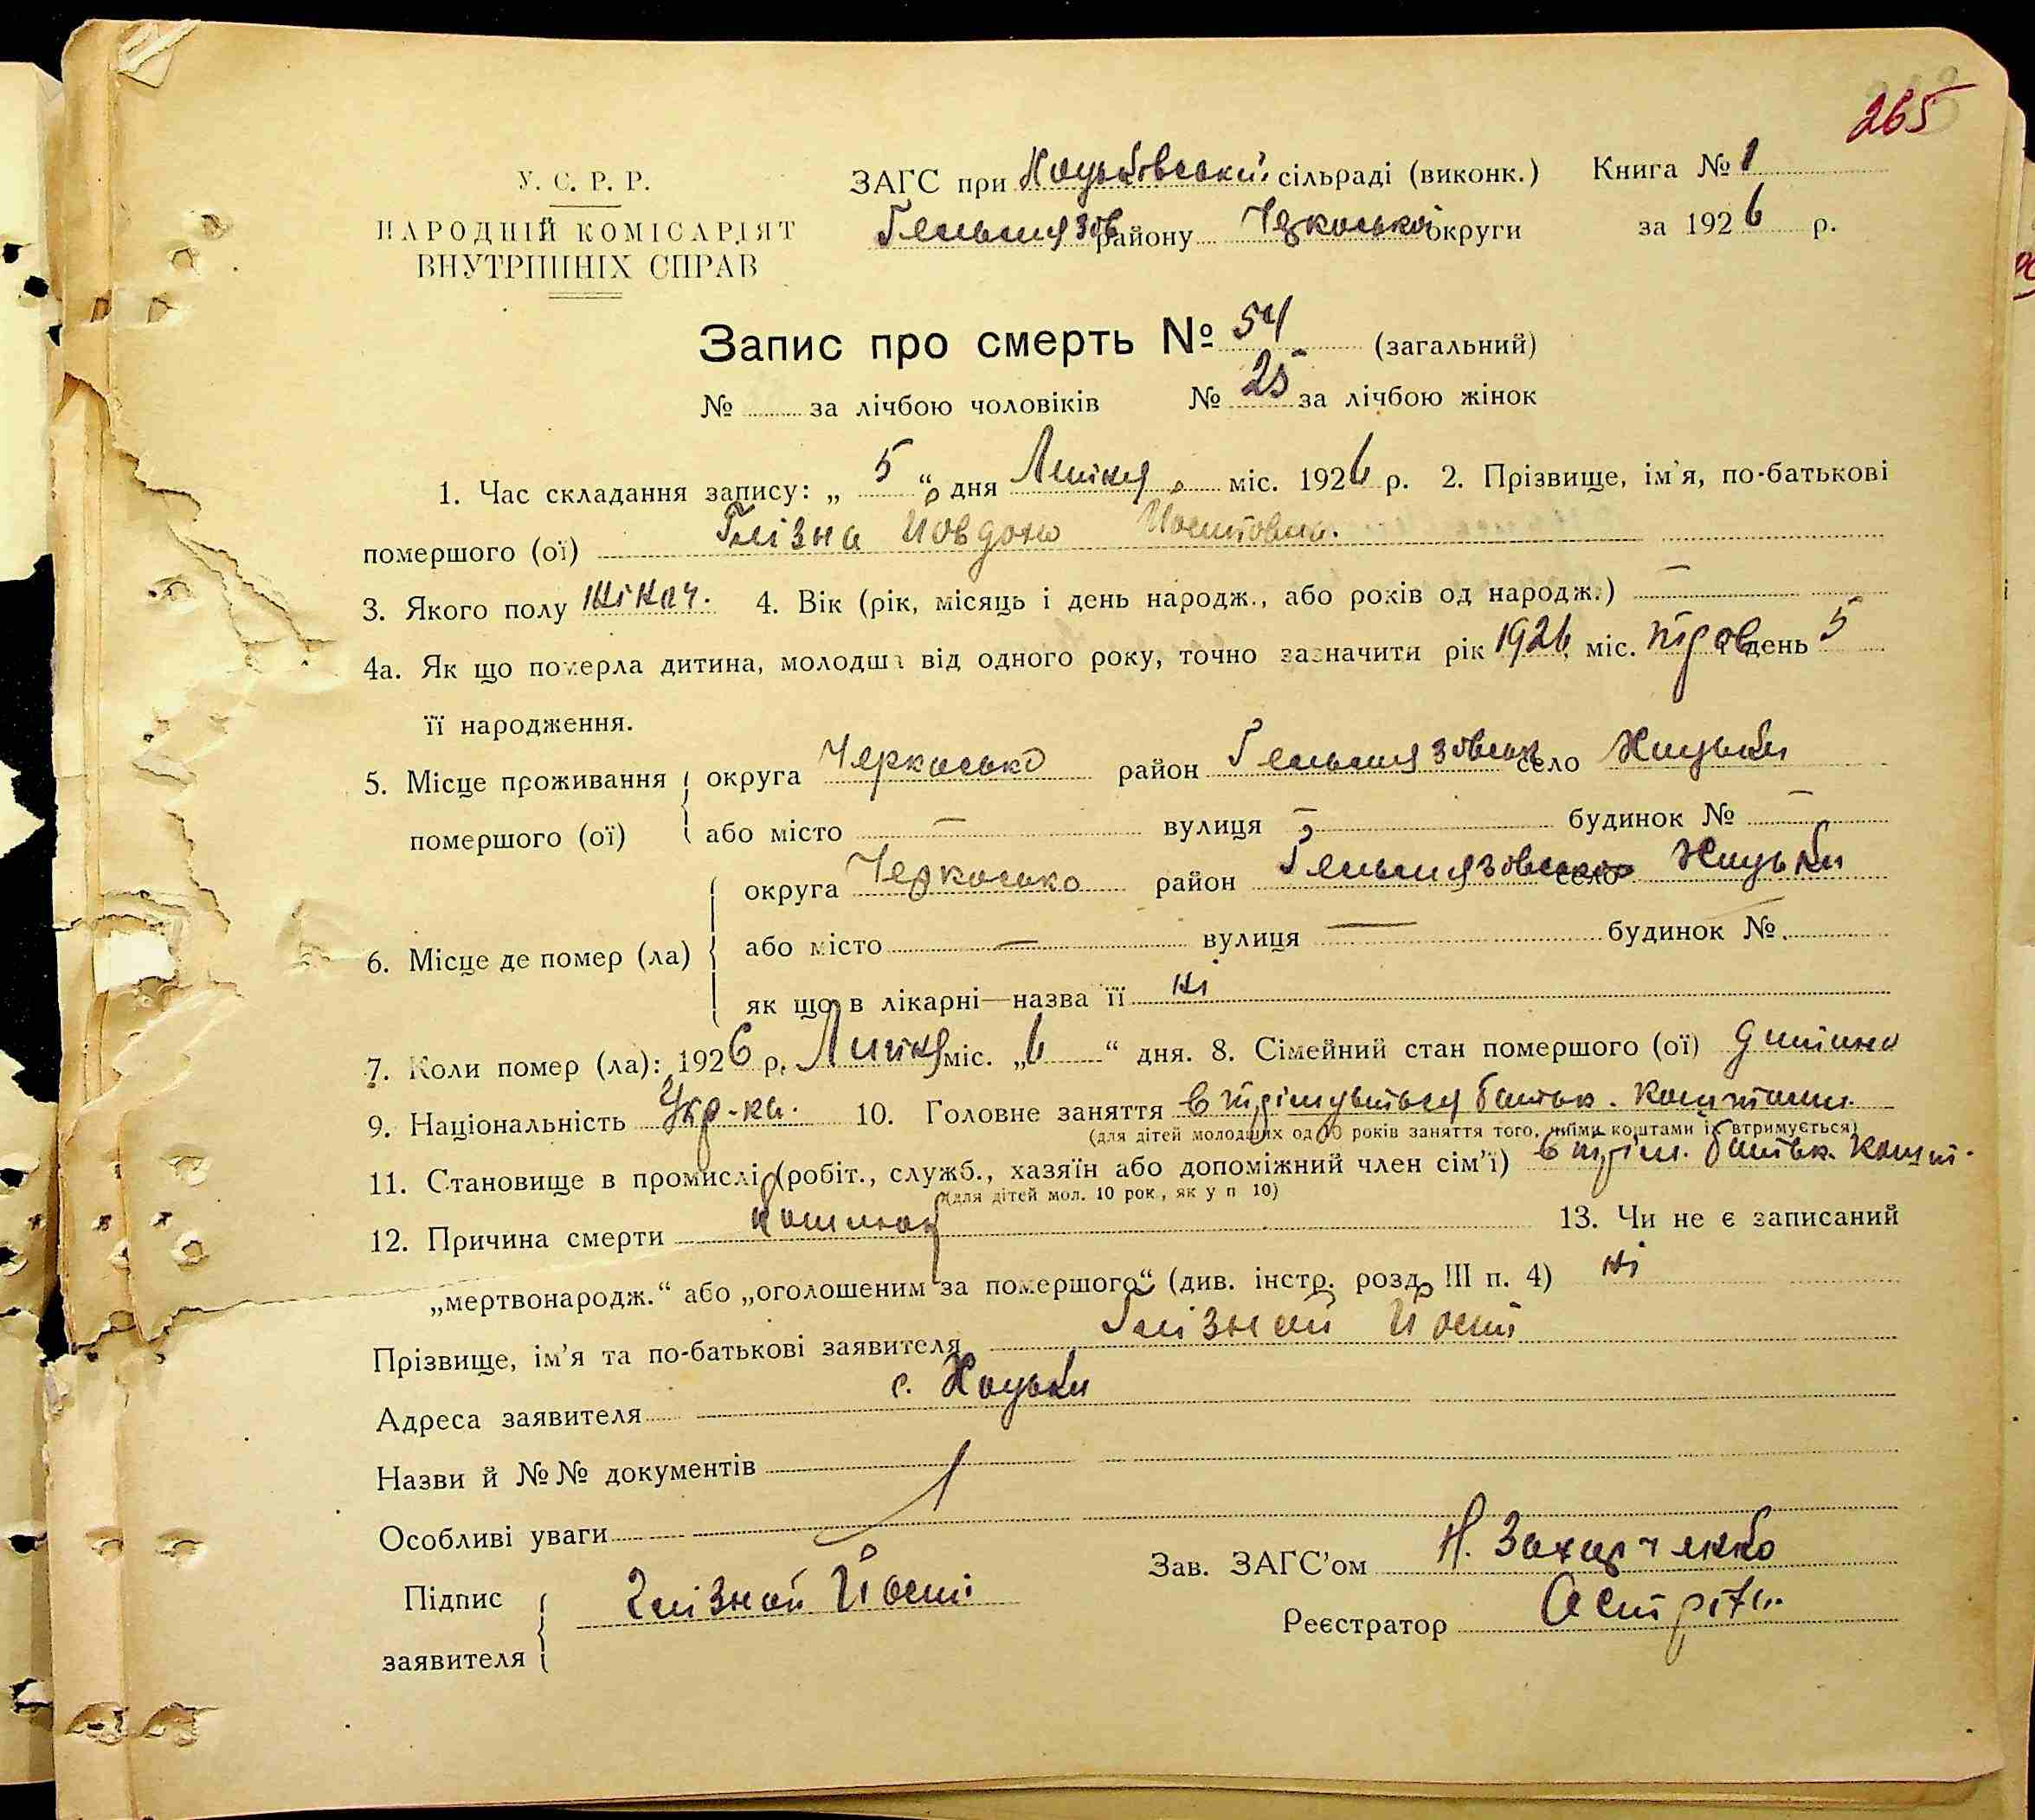 265
У. С. Р. Р.
НАРОДНІЙ КОМІСАРІЯТ
ВНУТРІШНІХ СПРАВ
ЗАГС при сільраді (виконк.) Книга № 1
Гельмязів району Черкоської округи за 1926 р.
Запис про смерть № 54 (загальний)
№ за лічбою чоловіків № 25 за лічбою жінок
1. Час складання запису: „ 5 “ дня Липня міс. 1926 р. 2. Прізвище, ім'я, по-батькові
помершого (ої) Глізна Йовдоха
3. Якого полу жіноч. 4. Вік (рік, місяць і день народж., або років од народж.) —
4а. Як що померла дитина, молодша від одного року, точно зазначити рік 1926 міс. день 5
її народження.
5. Місце проживання округа Черкосько район Гельмязовськ село
помершого (ої) або місто — вулиця — будинок № —
округа Черкосько район Гельмязовсько село
6. Місце де помер (ла) або місто — вулиця — будинок №
як що в лікарні—назва її ні
7. Коли помер (ла): 1926 р. Липня міс. „6“ дня. 8. Сімейний стан помершого (ої) дитина
9. Національність Укр-ка. 10. Головне заняття батьк. коштами
(для дітей молодших од 10 років заняття того, чиїми коштами їх втримується)
11. Становище в промислі (робіт., служб., хазяїн або допоміжний член сім'ї) в трім. батьк. кошт.
(для дітей мол. 10 рок., як у п 10)
12. Причина смерти кошлюк 13. Чи не є записаний
„мертвонародж.“ або „оголошеним за помершого“ (див. інстр. розд. III п. 4) ні
Прізвище, ім'я та по-батькові заявителя Глізной Йост
Адреса заявителя с.
Назви й №№ документів
Особливі уваги
Підпис заявителя Глізной Йост
Зав. ЗАГС'ом Н. Захарченко
Реєстратор